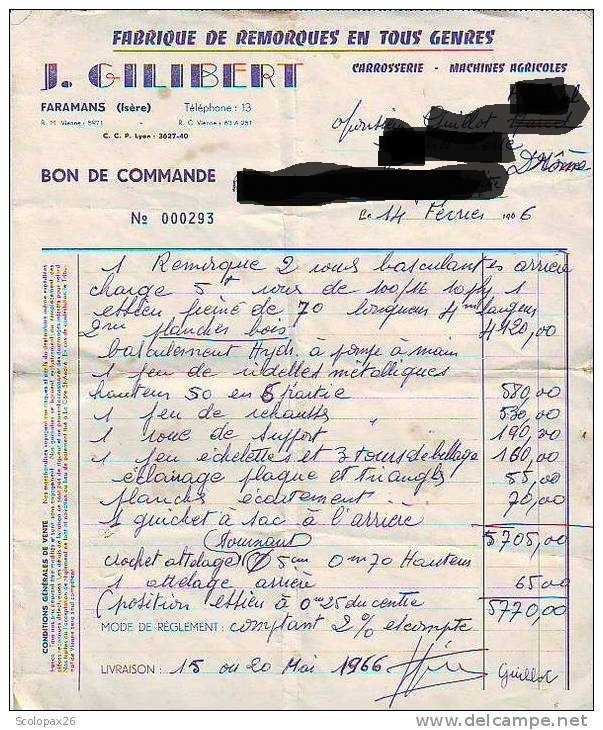 FABRIQUE DE REMORQUES EN TOUS GENRES
J. GILIBERT
CARROSSERIE - MACHINES AGRICOLES
FARAMANS (Isère) Téléphone : 13
R. M. Vienne : 5971 - R. C. Vienne : 63 A 251
C. C. P. Lyon : 3627-40
Monsieur Guillot
Drôme
BON DE COMMANDE
No 000293
Le 14 Février 1966
1 Remorque 2 roues basculantes arrière
charge 5t roues de 100/16 10 ply 1
essieu freiné de 70 longueur 4m largeur
2m planches bois 4120,00
basculement Hydr. à pompe à main
1 jeu de ridelles métalliques
hauteur 50 en 5 partie 580,00
1 jeu de rehausses " 530,00
1 roue de support 190,00
1 jeu échelettes et 3 tours de billage 160,00
éclairage plaque et triangles 55,00
planche écartement 70,00
1 guichet à sac à l'arrière
5705,00
tournant
crochet attelage 5 cm 0m70 Hauteur
1 attelage arrière 65,00
(position essieu à 0m25 du centre 5770,00
MODE DE RÈGLEMENT : comptant 2% escompte
LIVRAISON : 15 ou 20 Mai 1966
Guillot
CONDITIONS GÉNÉRALES DE VENTE
Scolopax26
delcampe.net